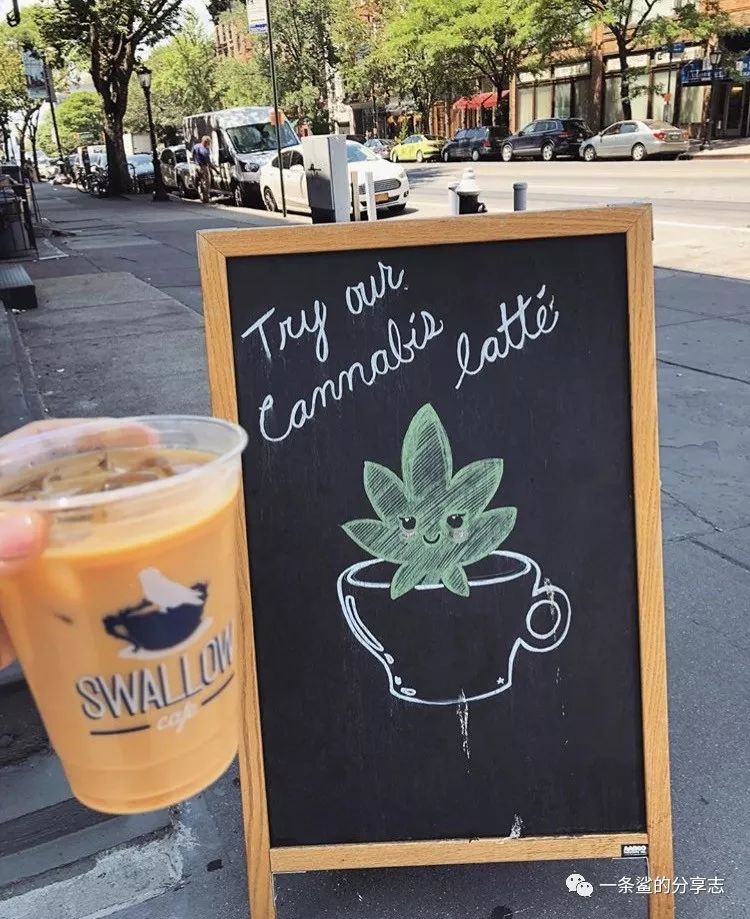 Try our
Cannabis latté
SWALLOW
cafe
一条鲨的分享志